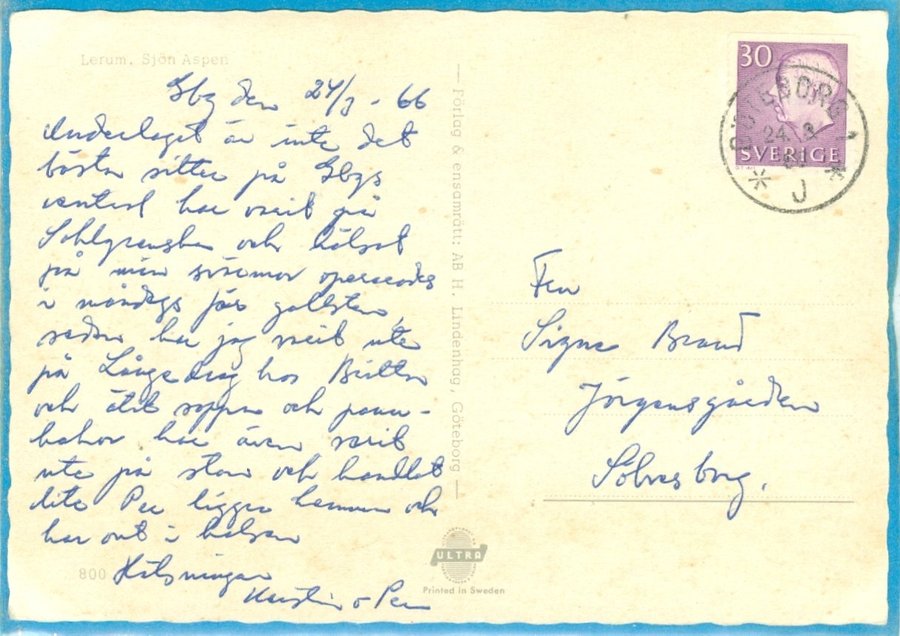 Lerum. Sjön Aspen
Gbg den 24/3 - 66
Underlaget är inte det
bästa sitter på Gbgs
central har varit på
Sahlgrenska och hälsat
på min svärmor opererades
i måndags för gallsten,
sedan har jag varit ute
på Långedrag hos Britten
och ätit soppa och pann-
kakor har även varit
ute på stan och handlat
lite Per ligger hemma och
har ont i halsen
Hälsningar
Kerstin o Per
800
Förlag & ensamrätt: AB H. Lindenhag, Göteborg
ULTRA
Printed in Sweden
30
SVERIGE
GÖTEBORG 1
24. 3.
J
Signe Brand
Jörgensgården
Sölvesborg.